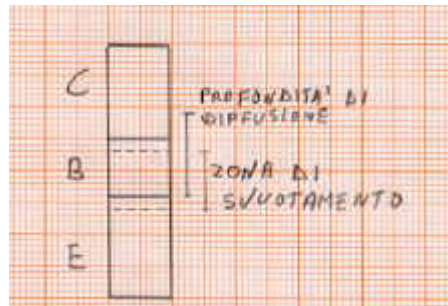 C
PROFONDITA' DI
DIFFUSIONE
B
ZONA DI
SVUOTAMENTO
E